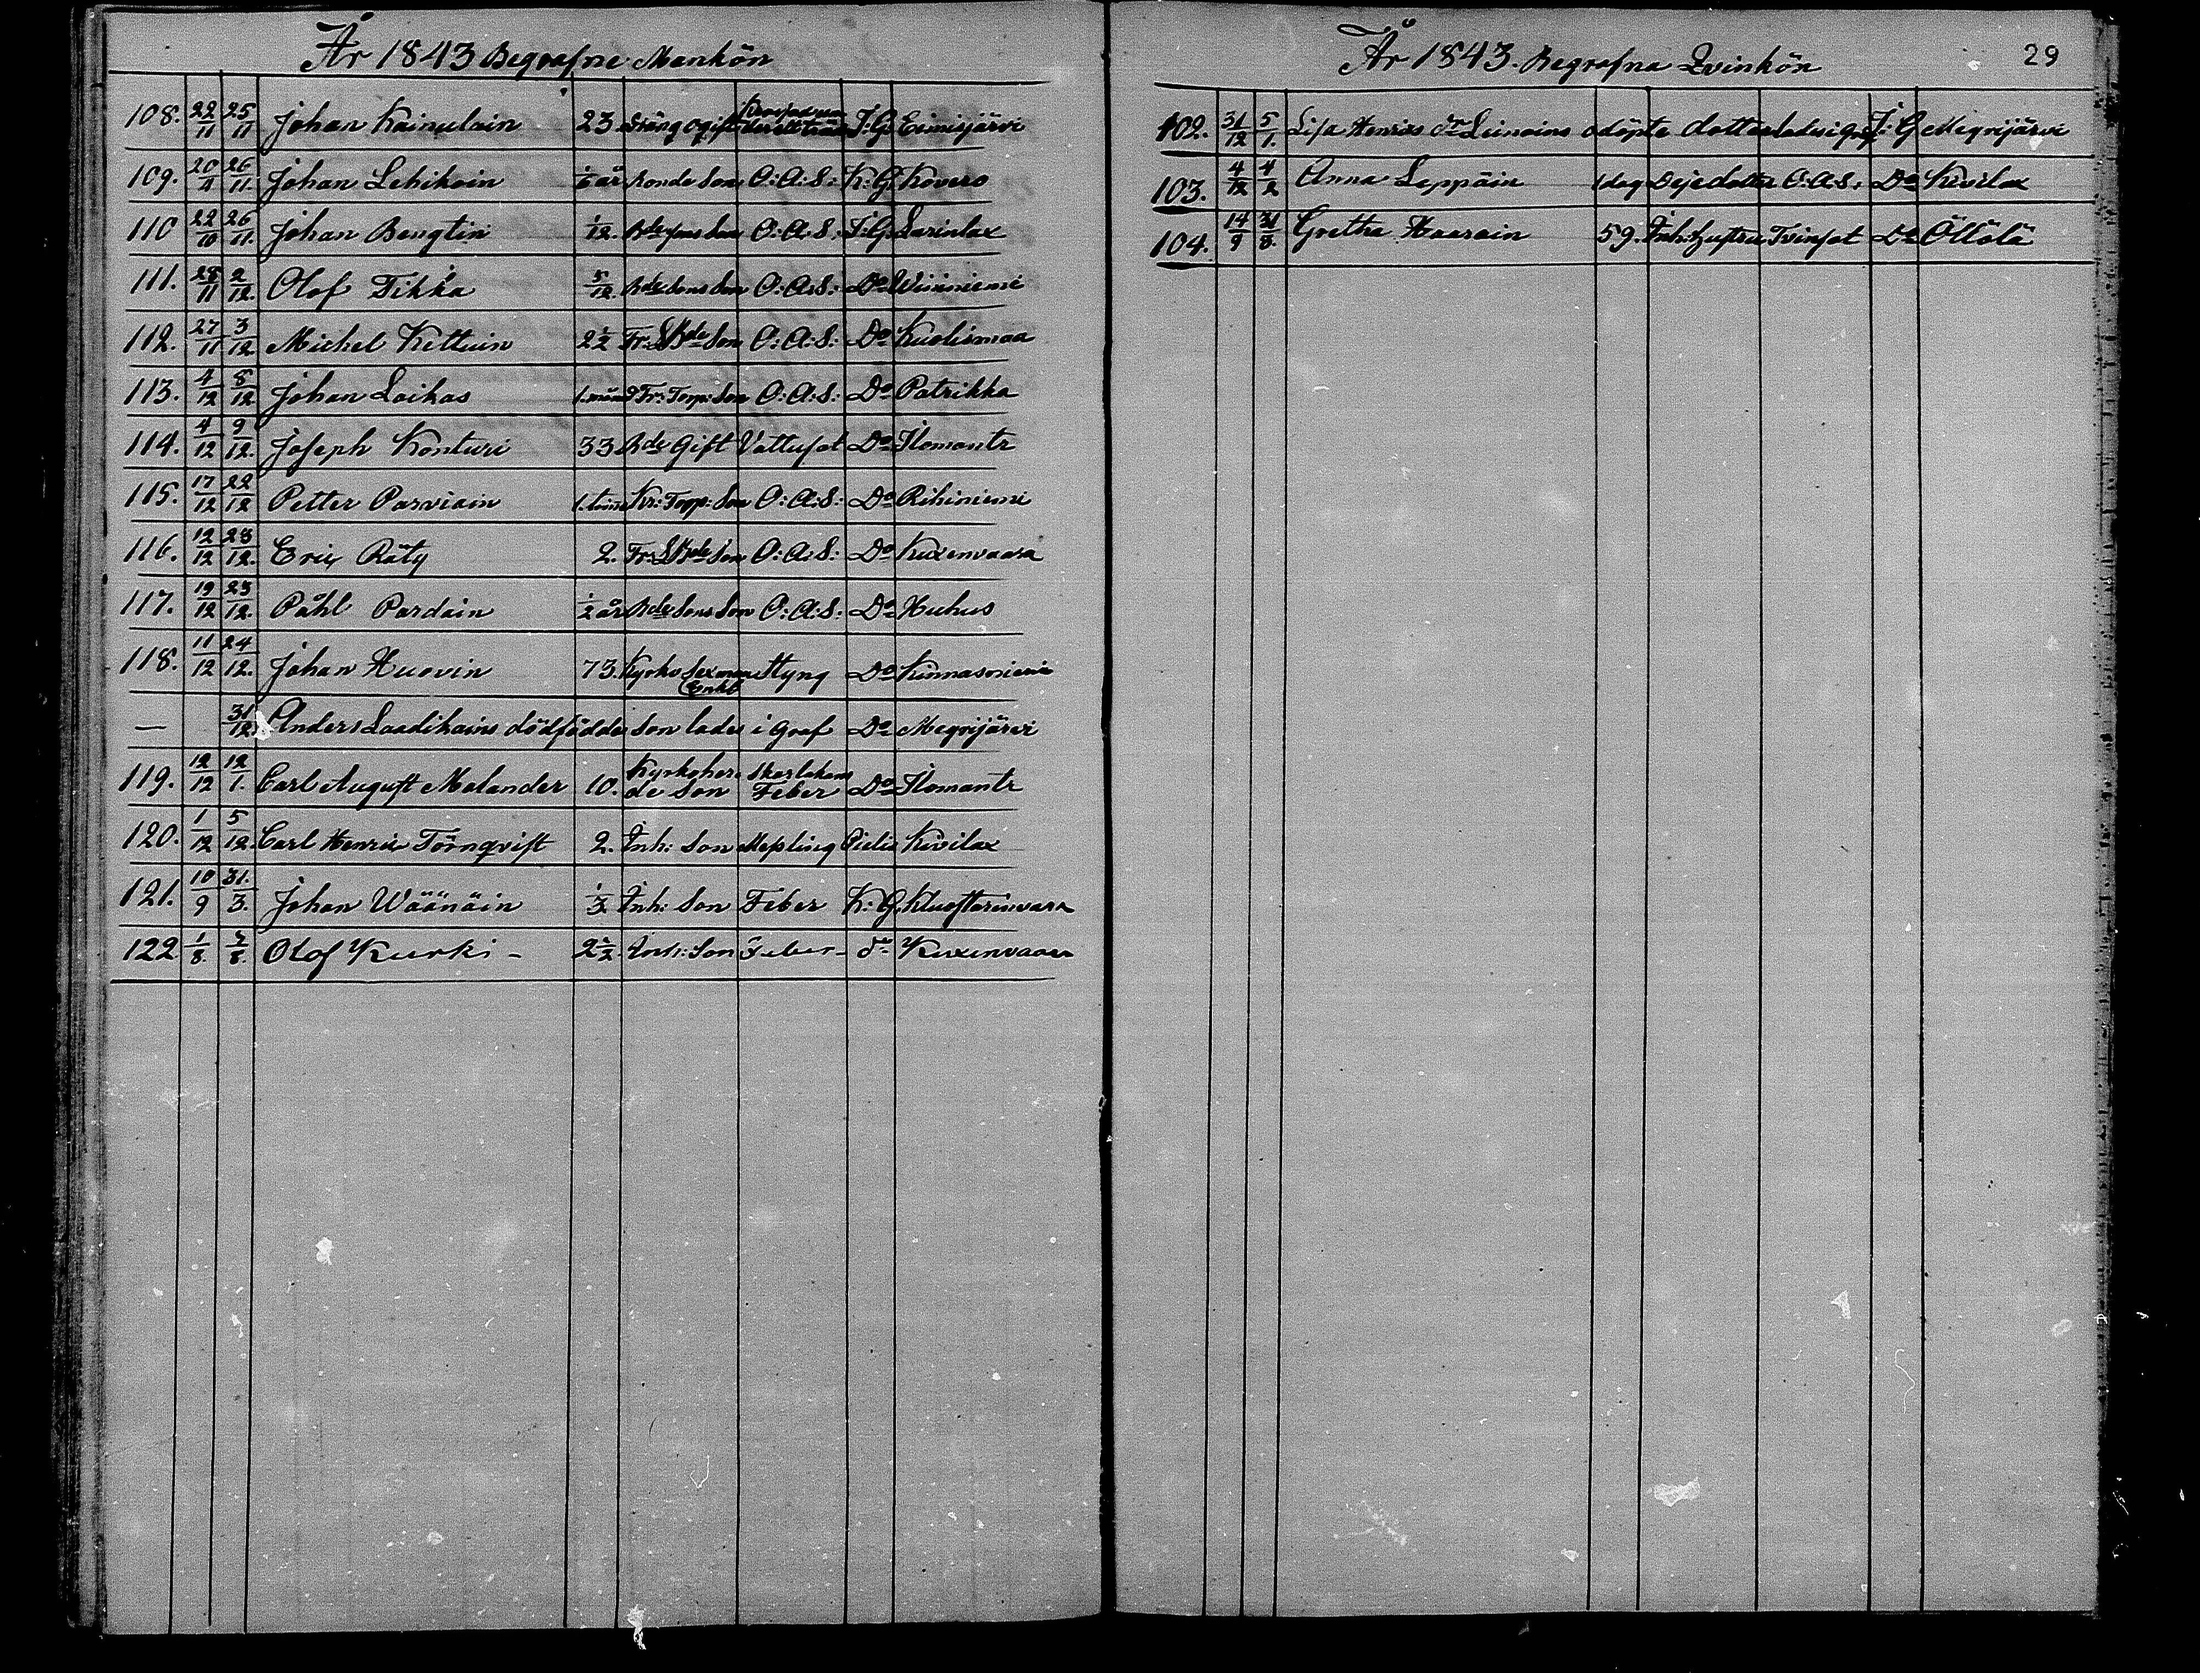 År 1843 Begrafne Mankön
108. 22/11 25/11 Johan Kainulain 23 Dräng ogift I: G. Eimisjärvi
109. 20/4 26/11. Johan Lehikoin 1/6 år Bonde Son O: A: S: K: G. Kovero
110 22/10 26/11. Johan Bengtin 1/12. O: A: S: I: G. Sarinlax
111. 28/11 2/12. Olof Tikka 5/12. Bde Sons Son O: A: S: Do Wiiniemi
112. 27/11 3/12 Michel Kettuin 2 1/2 Fr: SBde Son O: A: S: Do Kuolismaa
113. 4/12 8/12 Johan Laikas 1. mån Fr: Torp: Son O: A: S: Do Patrikka
114. 4/12 9/12. Joseph Konturi 33 Bde Gift Vattusot Do Ilomants
115. 17/12 22/12 Petter Parviain 1. timm Kr: Torp: Son O: A: S: Do Rihiniemi
116. 12/12 23/12. Eric Räty 2. Fr: SBde Son O: A: S: Do Kuxenvaara
117. 19/12 23/12. Påhl Pardain 1/2 år Bde Sons Son O: A: S: Do Huhus
118. 11/12 24/12. Johan Huovin 73. Kyrko Sexman Enkl Styng Do Kinnasniemi
— 31/12 Anders Laadikains dödfödde Son lades i Graf Do Megrijärvi
119. 12/12 12/1. Carl August Molander 10. Kyrkoher de Son Skarlakans Feber Do Ilomants
120. 1/12 5/12. Carl Henric Törnqvist 2. Inh: Son Messling Pielis Kivilax
121. 10/9 31./3. Johan Wäänäin 1/3 Inh: Son Feber K: G.
122 1/8. Olof Kurki - 2 1/2 Inh: Son Feber - do Kuxenvaara
År 1843. Begrafna Qvinkön
29
102. 31/12 5/1. Lisa Henricsdr Leinoins odöpta dotter lades i Graf I: G Megrijärvi
103. 4/12 4/2 Anna Leppäin 1 dag Deje dotter O: A: S: Do Kivilax
104. 14/9 31/8. Gretha Haarain 59. Inh: hustru Tvinsot Do Öllölä